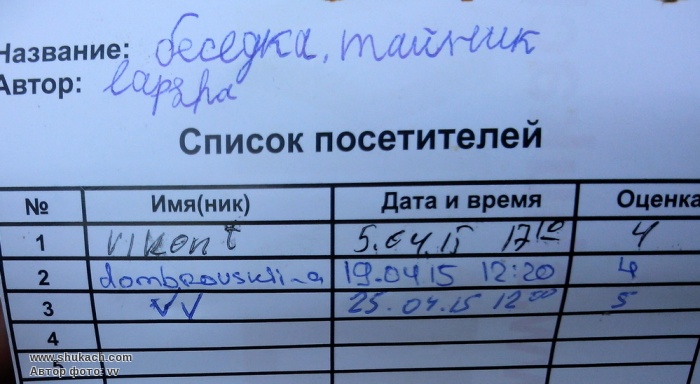 Название: беседка, тайник
Автор:
Список посетителей
№ Имя(ник) Дата и время Оценка
1 vikont 5.04.15 17 10 4
2 dombrovskii-a 19.04.15 12:20 4
3 VV 25.04.15 12 00 5
4
www.shukach.com
Автор фото: vv